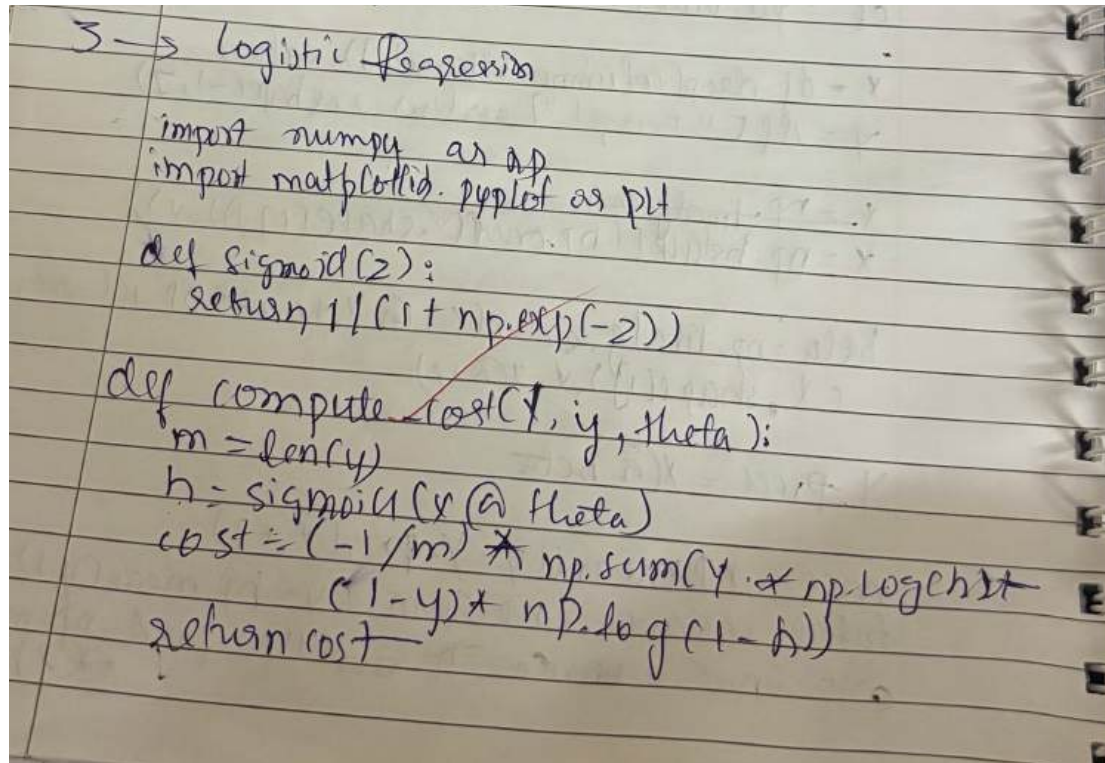 3 → Logistic Regression
import numpy as np
import matplotlib.pyplot as plt
def sigmoid(z):
return 1/(1 + np.exp(-z))
def compute_cost(X, y, theta):
m = len(y)
h = sigmoid(x @ theta)
cost = (-1/m) * np.sum(y * np.log(h) +
(1-y) * np.log(1-h))
return cost